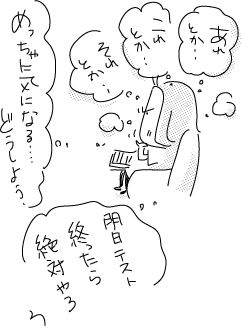 あれ
とか…
これ
とか…
それ
とか…
めっちゃ気になる……
どうしよう…
明日テスト
終ったら
絶対やろ
う